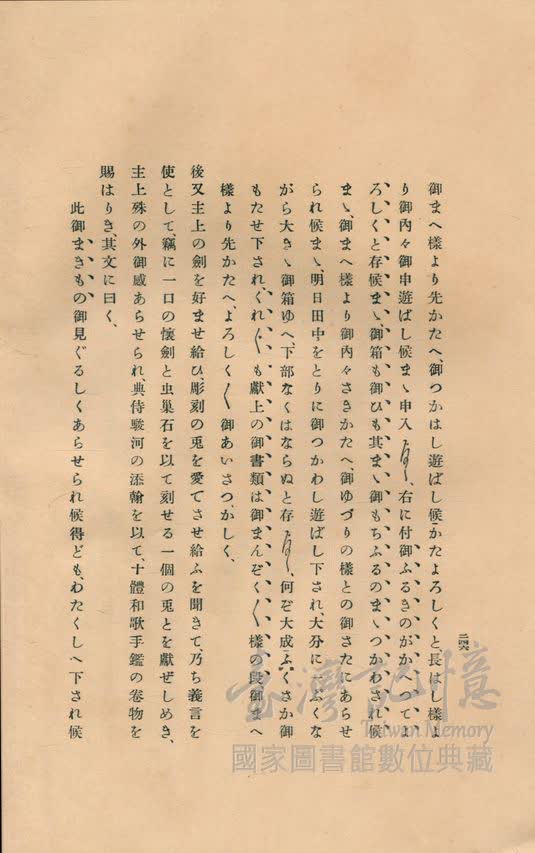 御まへ樣より先かたへ、御つかはし遊ばし候かたよろしくと、長はし樣よ
り御內々御申遊ばし候まゝ申入、右に付御ふるきのがかへつてよ
ろしくと存候まゝ、御箱も御ひも其まゝ御もちふるのまゝつかわされ候
まゝ、御まへ樣より御內々さきかたへ、御ゆづりの樣との御さたにあらせ
られ候まゝ、明日田中をとりに御つかわし遊ばし下され、大分に一ぷくな
がら大きゝ御箱ゆへ、下部なくはならぬと存、何ぞ大成ふくさか御
もたせ下され、くれ〴〵も獻上の御書類は御まんぞく〳〵樣の段御まへ
樣より先かたへ、よろしく〳〵御あいさつ、かしく、
後又主上の劍を好ませ給ひ、彫刻の兎を愛でさせ給ふを聞きて、乃ち義言を
使として、竊に一口の懷劍と虫巢石を以て刻せる一個の兎とを獻ぜしめき、
主上殊の外御感あらせられ、典侍駿河の添翰を以て、十體和歌手鑑の卷物を
賜はりき、其文に曰く、
此御まきもの御見ぐるしくあらせられ候得ども、わたくしへ下され候
二四六
臺灣記憶
Taiwan Memory
國家圖書館數位典藏